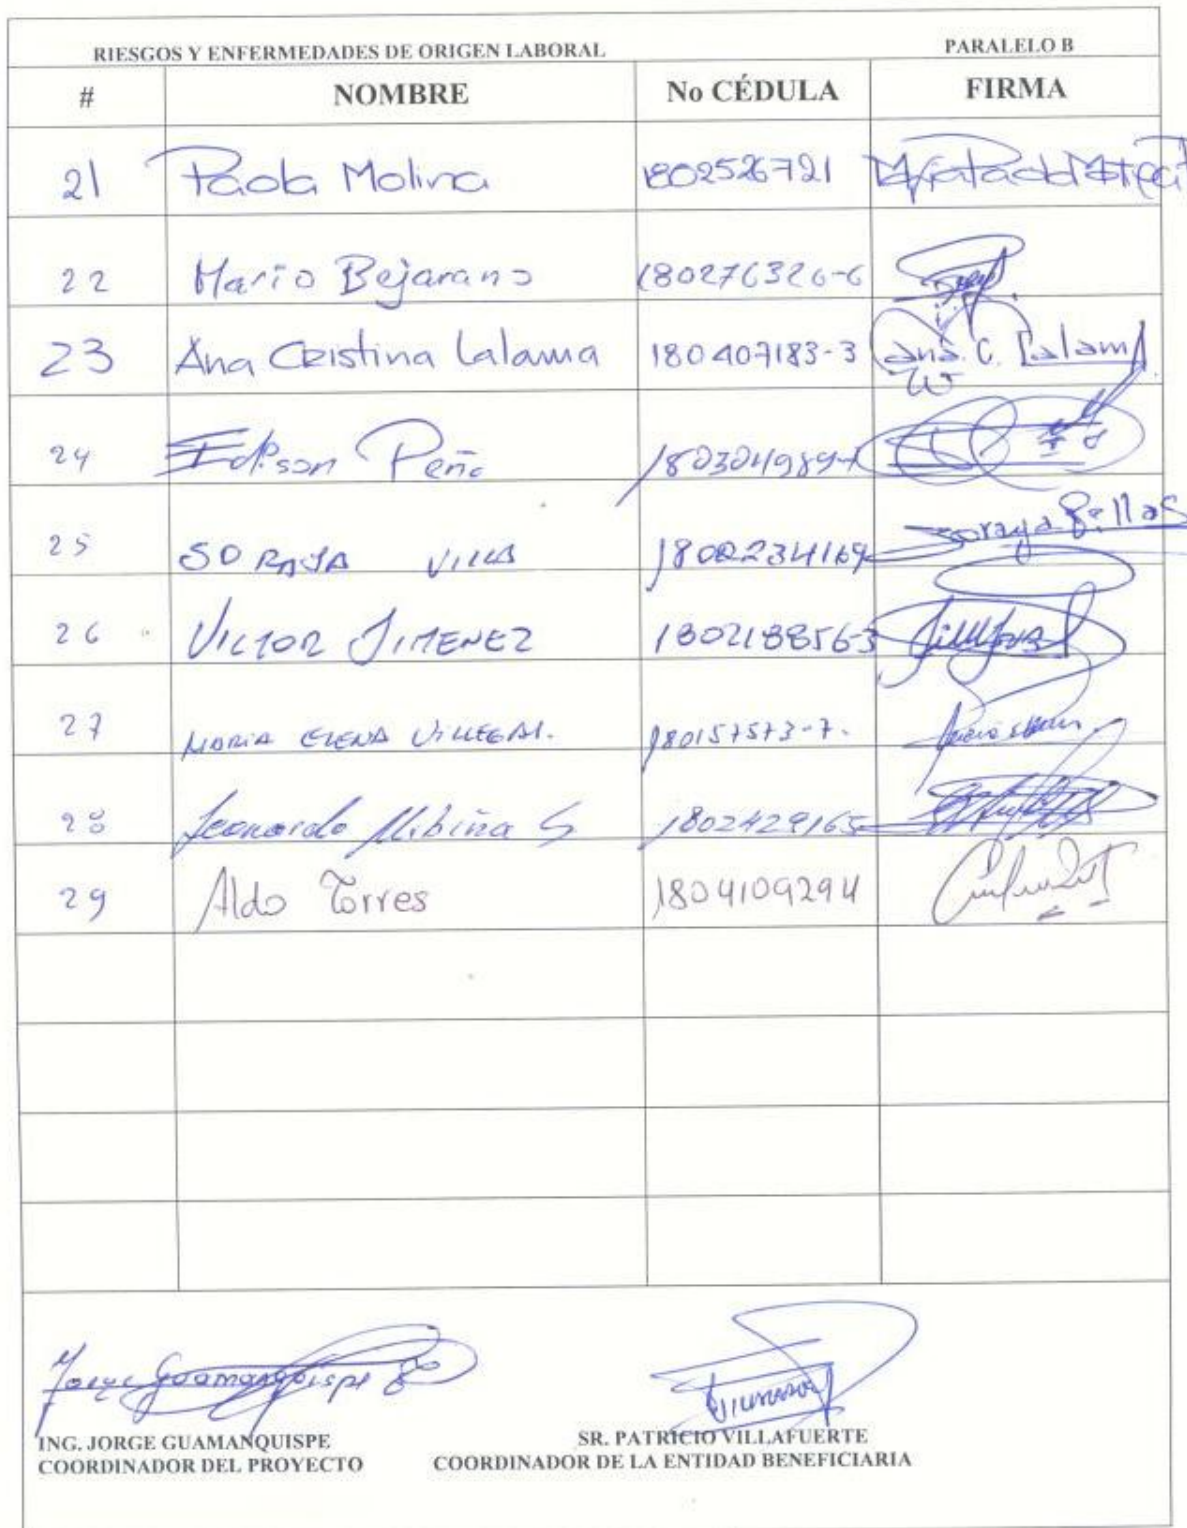 RIESGOS Y ENFERMEDADES DE ORIGEN LABORAL PARALELO B
# NOMBRE No CÉDULA FIRMA
21 Paola Molina 1802526721
22 Mario Bejarano 180276326-6
23 Ana Cristina Lalama 180407183-3 Ana C. Lalama
24 Edisson Peña
25 SORAYA VILLA Soraya Villa S
26 VICTOR JIMENEZ 1802188563
27 MARIA ELENA VILLEGAS. 180157573-7.
28 Leonardo S 1802429165
29 Aldo Torres 1804109294
Jorge Guamanquispe
ING. JORGE GUAMANQUISPE SR. PATRICIO VILLAFUERTE
COORDINADOR DEL PROYECTO COORDINADOR DE LA ENTIDAD BENEFICIARIA